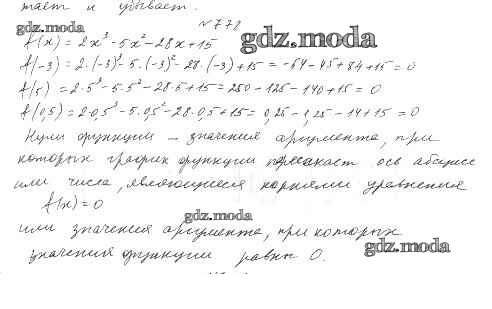 тает и убывает.
№ 772
gdz.moda
f(x) = 2x³ - 5x² - 28x + 15
gdz.moda
f(-3) = 2·(-3)³ - 5·(-3)² - 28·(-3) + 15 = -54 - 45 + 84 + 15 = 0
f(5) = 2·5³ - 5·5² - 28·5 + 15 = 250 - 125 - 140 + 15 = 0
f(0,5) = 2·0,5³ - 5·0,5² - 28·0,5 + 15 = 0,25 - 1,25 - 14 + 15 = 0
Нули функции — значения аргумента, при
которых график функции пересекает ось абсцисс
или числа, являющиеся корнями уравнения
f(x) = 0
gdz.moda
или значения аргумента, при которых
gdz.moda
значения функции равны 0.